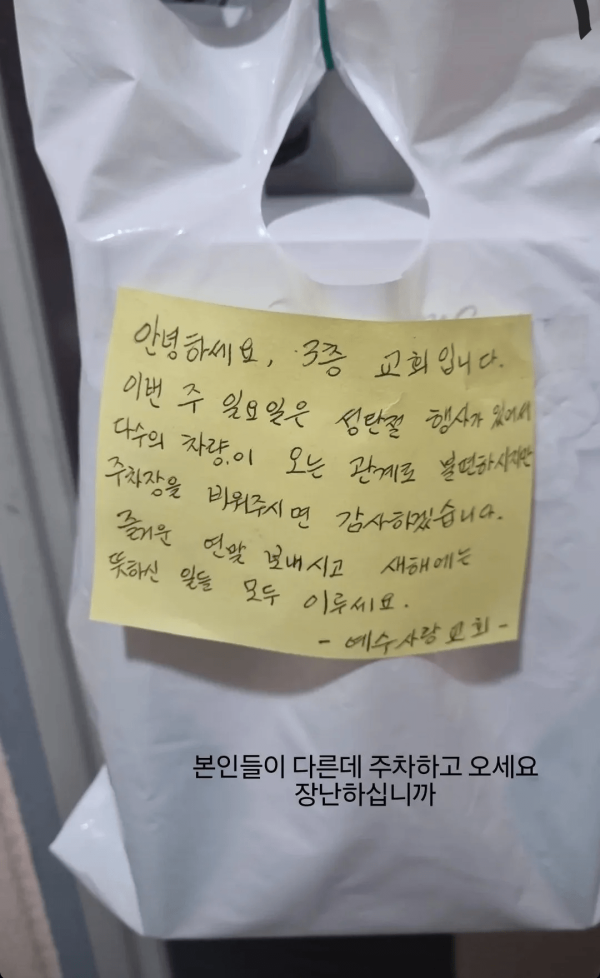 안녕하세요, 3층 교회입니다.
이번 주 일요일은 성탄절 행사가 있어서
다수의 차량이 오는 관계로 불편하시지만
주차장을 비워주시면 감사하겠습니다.
즐거운 연말 보내시고 새해에는
뜻하신 일들 모두 이루세요.
- 예수사랑교회 -
본인들이 다른데 주차하고 오세요
장난하십니까